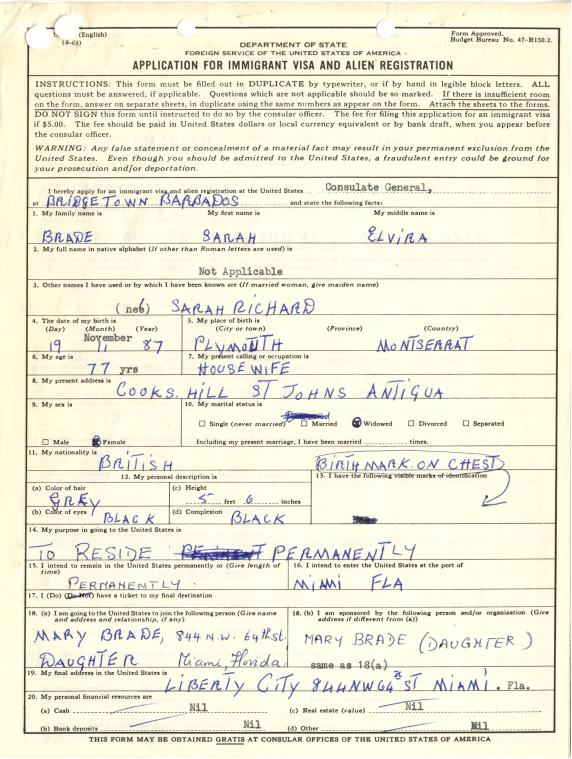 (English)
(4-65)
Form Approved.
Budget Bureau No. 47-R150.2.
DEPARTMENT OF STATE
FOREIGN SERVICE OF THE UNITED STATES OF AMERICA
APPLICATION FOR IMMIGRANT VISA AND ALIEN REGISTRATION
INSTRUCTIONS: This form must be filled out in DUPLICATE by typewriter, or if by hand in legible block letters. ALL
questions must be answered, if applicable. Questions which are not applicable should be so marked. If there is insufficient room
on the form, answer on separate sheets, in duplicate using the same numbers as appear on the form. Attach the sheets to the forms.
DO NOT SIGN this form until instructed to do so by the consular officer. The fee for filing this application for an immigrant visa
if $5.00. The fee should be paid in United States dollars or local currency equivalent or by bank draft, when you appear before
the consular officer.
WARNING: Any false statement or concealment of a material fact may result in your permanent exclusion from the
United States. Even though you should be admitted to the United States, a fraudulent entry could be ground for
your prosecution and/or deportation.
I hereby apply for an immigrant visa and alien registration at the United States Consulate General,
at BRIDGETOWN BARBADOS and state the following facts:
1. My family name is My first name is My middle name is
BRADE SARAH ELVIRA
2. My full name in native alphabet (If other than Roman letters are used) is
Not Applicable
3. Other names I have used or by which I have been known are (If married woman, give maiden name)
(neé) SARAH RICHARD
4. The date of my birth is 5. My place of birth is
(Day) (Month) (Year) (City or town) (Province) (Country)
November
19 11 87 PLYMOUTH MONTSERRAT
6. My age is 7. My present calling or occupation is
77 yrs HOUSEWIFE
8. My present address is COOKS HILL ST JOHNS ANTIGUA
9. My sex is 10. My marital status is
Single (never married) Married Widowed Divorced Separated
Male Female Including my present marriage, I have been married times.
11. My nationality is BRITISH BIRTH MARK ON CHEST
12. My personal description is 13. I have the following visible marks of identification
(a) Color of hair (c) Height
GREY 5 feet 6 inches
(b) Color of eyes BLACK (d) Complexion BLACK
14. My purpose in going to the United States is
TO RESIDE PERMANENTLY
15. I intend to remain in the United States permanently or (Give length of
time) 16. I intend to enter the United States at the port of
PERMANENTLY MIAMI FLA
17. I (Do) (Do Not) have a ticket to my final destination
18. (a) I am going to the United States to join the following person (Give name
and address and relationship, if any) 18. (b) I am sponsored by the following person and/or organization (Give
address if different from (a))
MARY BRADE, 844 N.W. 64th st. MARY BRADE (DAUGHTER)
DAUGHTER Miami, Florida. same as 18(a)
19. My final address in the United States is LIBERTY CITY 844 NW 64th ST MIAMI. Fla.
20. My personal financial resources are
(a) Cash Nil (c) Real estate (value) Nil
(b) Bank deposits Nil (d) Other Nil
THIS FORM MAY BE OBTAINED GRATIS AT CONSULAR OFFICES OF THE UNITED STATES OF AMERICA